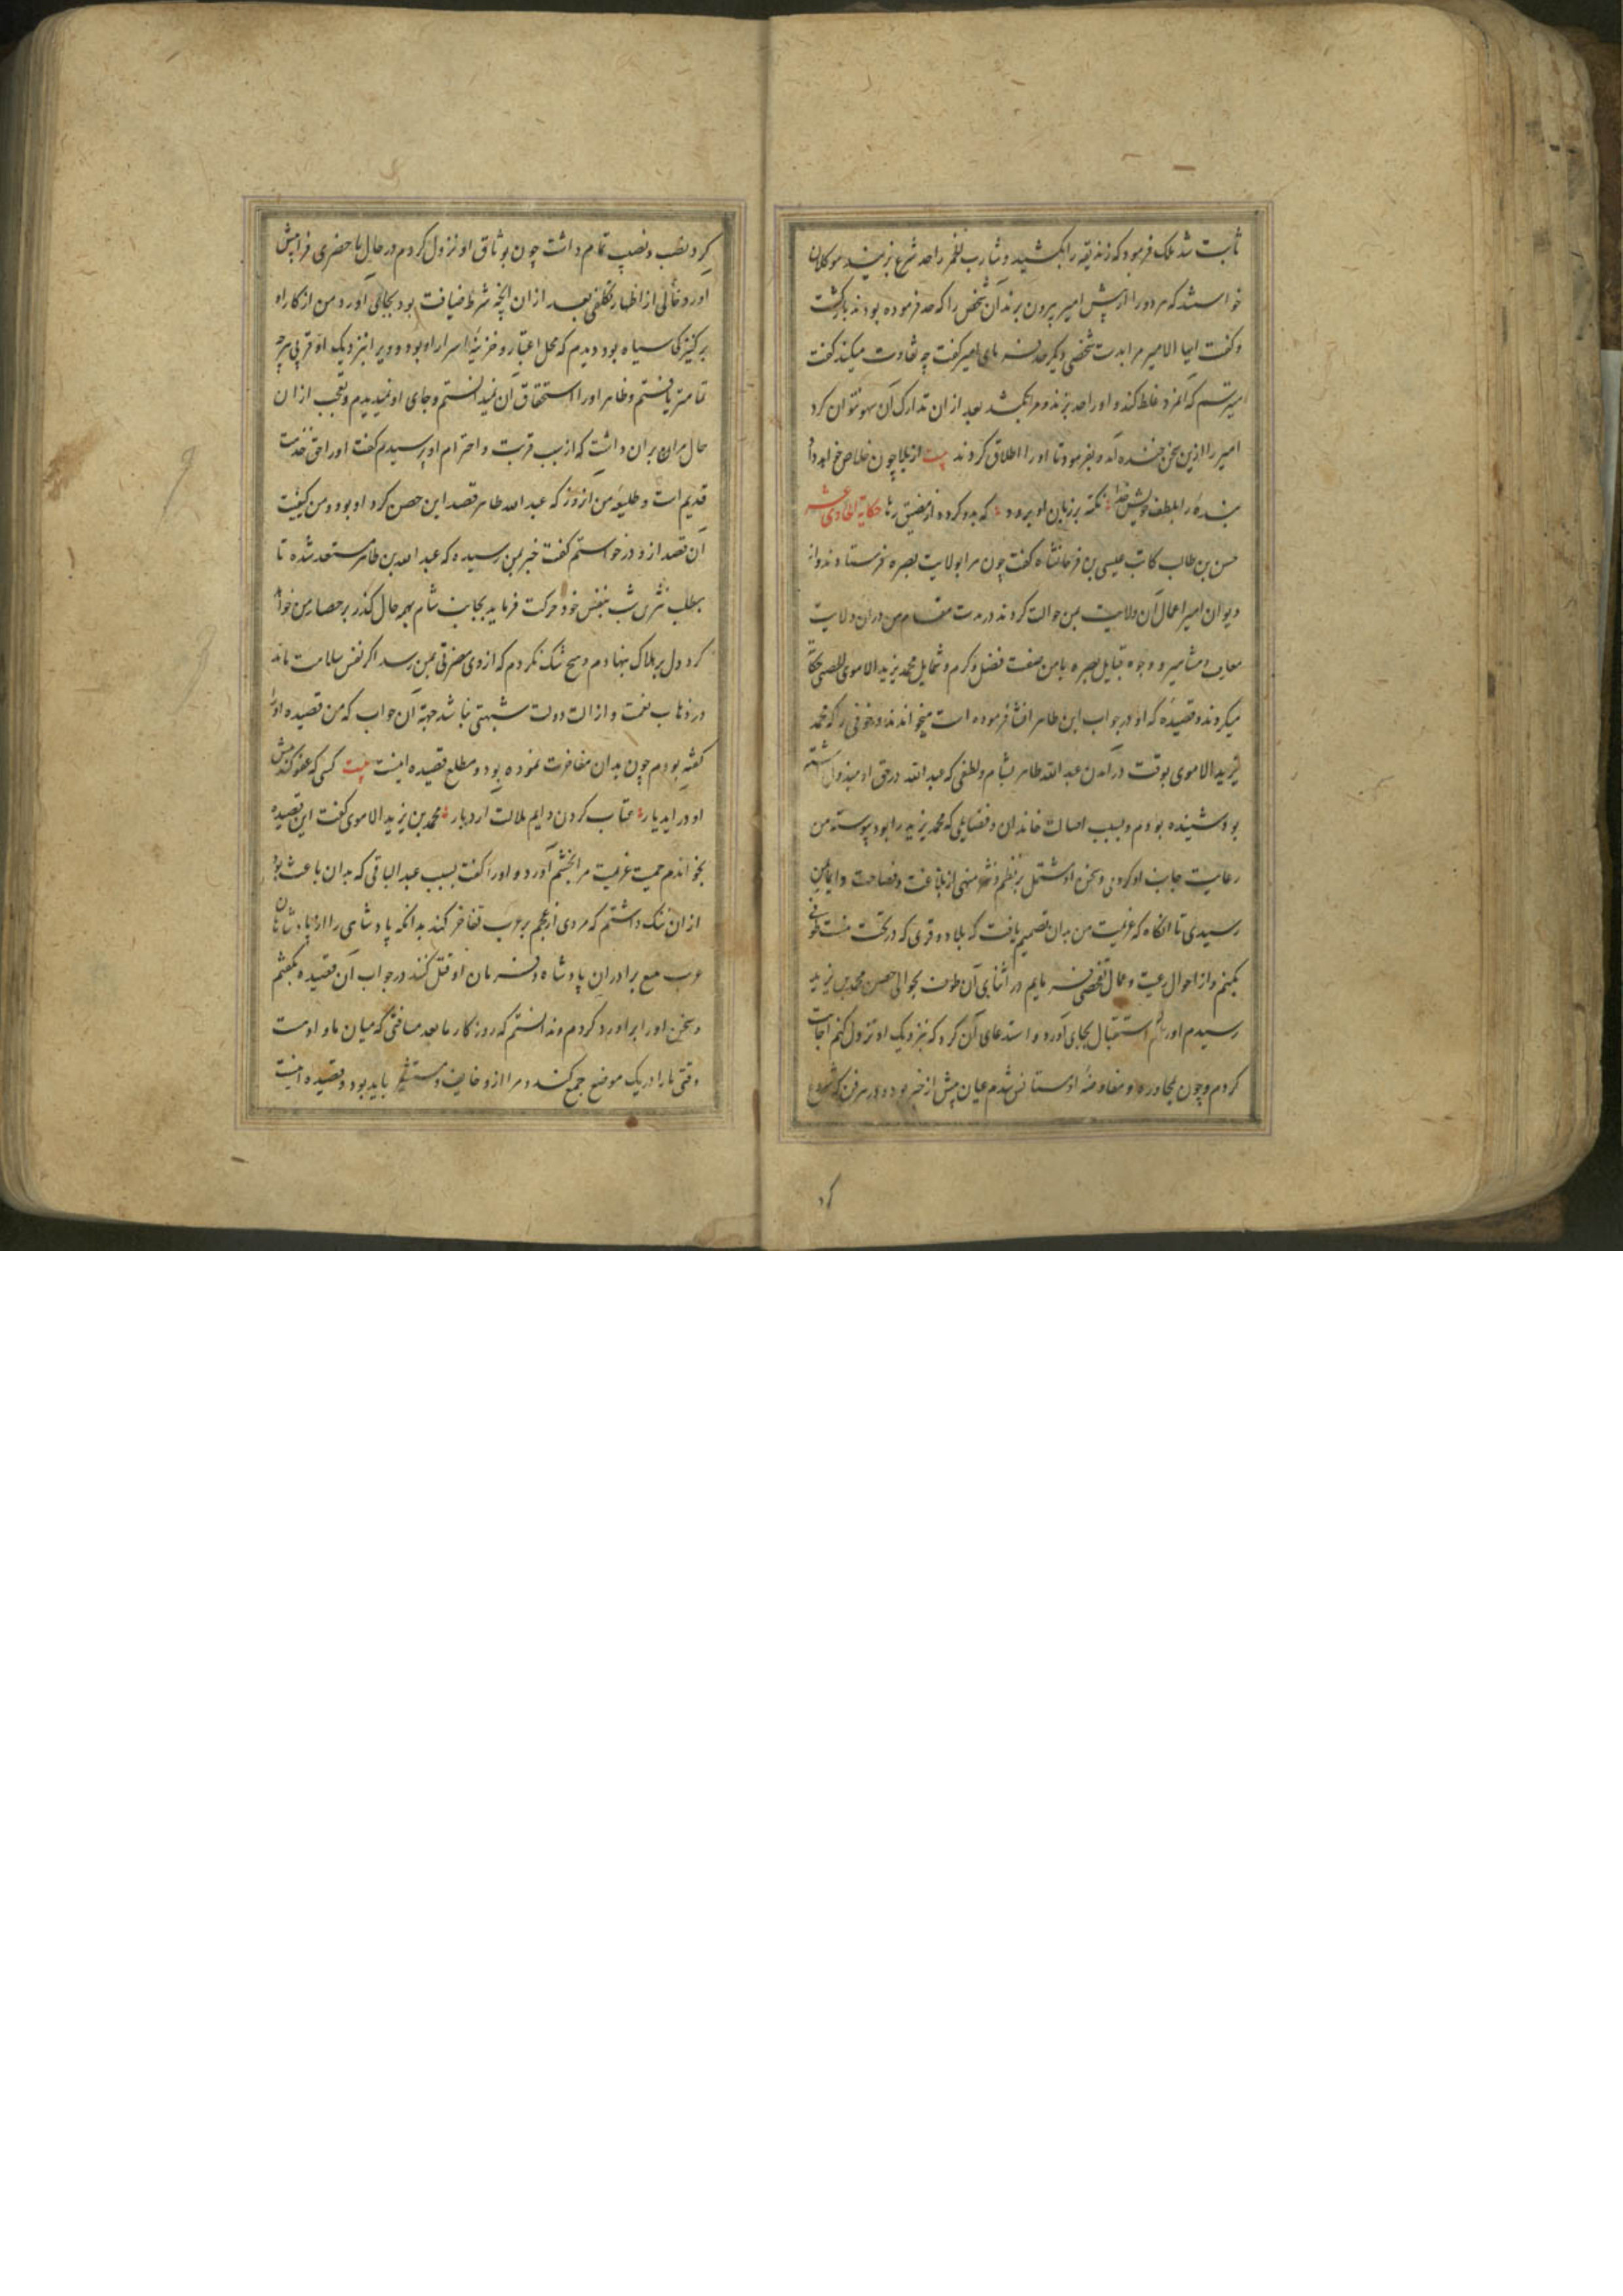 ثابت شد ملک فرمود که زندیقه را بکشید و شارب الخمر را حد شرع بزنید موکلان
خواستند که هر دو را از پیش امیر بیرون برند آن شخص را که حد فرموده بودند بازگشت
و گفت ایها الامیر مرا بدست شخصی دیگر حد فرمای امیر گفت چه تفاوت میکند گفت
میترسم که آنمرد غلط کند و او را حد بزند و مرا بکشد بعد از ان تدارک آن سهو نتوان کرد
امیر را ازین سخن خنده آمد و بفرمود تا او را اطلاق کردند بیت از بلا چون خلاص خواهد داد
بنده را بلطف خویش خدا نکته بر زبان او برود که بدو کرده از مضیق رها حکایة الحادی عشر
حسن بن طالب کاتب عیسی بن فرخانشاه گفت چون مرا بولایت بصره فرستادند و از
دیوان امیر اعمال آن ولایت بمن حوالت کردند در مدت مقام من در ان ولایت
معارف و مشاهیر و وجوه قبایل بصره با من صفت فضل و کرم و شمایل محمد یزید الاموی الحصنی حکایت
میکردند و قصیده که او در جواب ابن طاهر انشا فرموده است میخواندند و خوفی را که محمد
یزید الاموی بوقت درآمدن عبد الله طاهر بشام و لطفی که عبد الله در حق او مبذول داشته
بود شنیده بودم و بسبب اصالت خاندان و فضایلی که محمد یزید را بود پیوسته من
رعایت جانب او کردی و سخن او مشتمل بر نظم و نثر منهی از بلاغت و فصاحت دایما بمن
رسیدی تا انگاه که عزیمت من بدان تصمیم یافت که بلاد و قری که در تحت منست طوفی
بکنم و از احوال رعیت و عمال تفحص فرمایم در اثنای آن طوف بحوالی حصن محمد بن یزید
رسیدم او رسم استقبال بجای آورد و استدعای آن کرد که بنزدیک او نزول کنم اجابت
کردم و چون بمحاوره و مفاوضهٔ او مستانس شدم عیان بیش از خبر بود و در هر فن که شروع
کرد
کرد نقب و نصیب تمام داشت چون بوثاق او نزول کردم در حال ما حضری فرا پیش
اورد خالی از اظهار تکلفی بعد از ان انچه شرط ضیافت بود بجای اورد و من از کار او
بر کنیزکی سیاه بود دیدم که محل اعتبار و خزینهٔ اسرار او بود و ویرا بنزدیک او قربی هرچه
تمامتر یافتم و ظاهر او را استحقاق آن نمیدانستم و جای او نمیدیدم و تعجب از ان
حال مرا بران داشت که از سبب قربت و احترام او پرسیدم گفت او را حق خدمت
قدیم است و طلیعهٔ من انروز که عبد الله طاهر قصد این حصن کرد او بود و من کیفیت
آن قصد ازو درخواستم گفت خبر بمن رسید که عبد الله بن طاهر مستعد شده تا
بطلب نصر بن شبث بنفس خود حرکت فرماید بجانب شام بهر حال گذر بر حصار من خواهد
کرد دل بر هلاک بنهادم و هیچ شک نکردم که از وی مضرتی بمن رسد اگر نفس بسلامت ماند
در ذهاب نعمت و ازالت دولت شبهتی نباشد جهة آن جواب که من قصیده او را
گفته بودم چون بدان مفاخرت نموده بود و مطلع قصیده اینست بیت کسی که عفو کند پیش
او در اید یار عتاب کردن دایم ملالت ارد بار محمد بن یزید الاموی گفت این قصیده
بخواندم حمیت عربیت مرا بخشم آورد و او را گفت بسبب عبد الباقی که بدان باعث بود
از ان ننگ داشتم که مردی از عجم بر عرب تفاخر کند بدانکه پادشاهی را از پادشاهان
عرب مع برادران پادشاه و فرمان او قتل کنند در جواب آن قصیده بگفتم
و سخن او را بر او رد کردم و ندانستم که روزگار ما بعد مسافتی که میان ما و اوست
وقتی ما را در یک موضع جمع کند و مرا ازو خایف و مستشعر باید بود و قصیده اینست